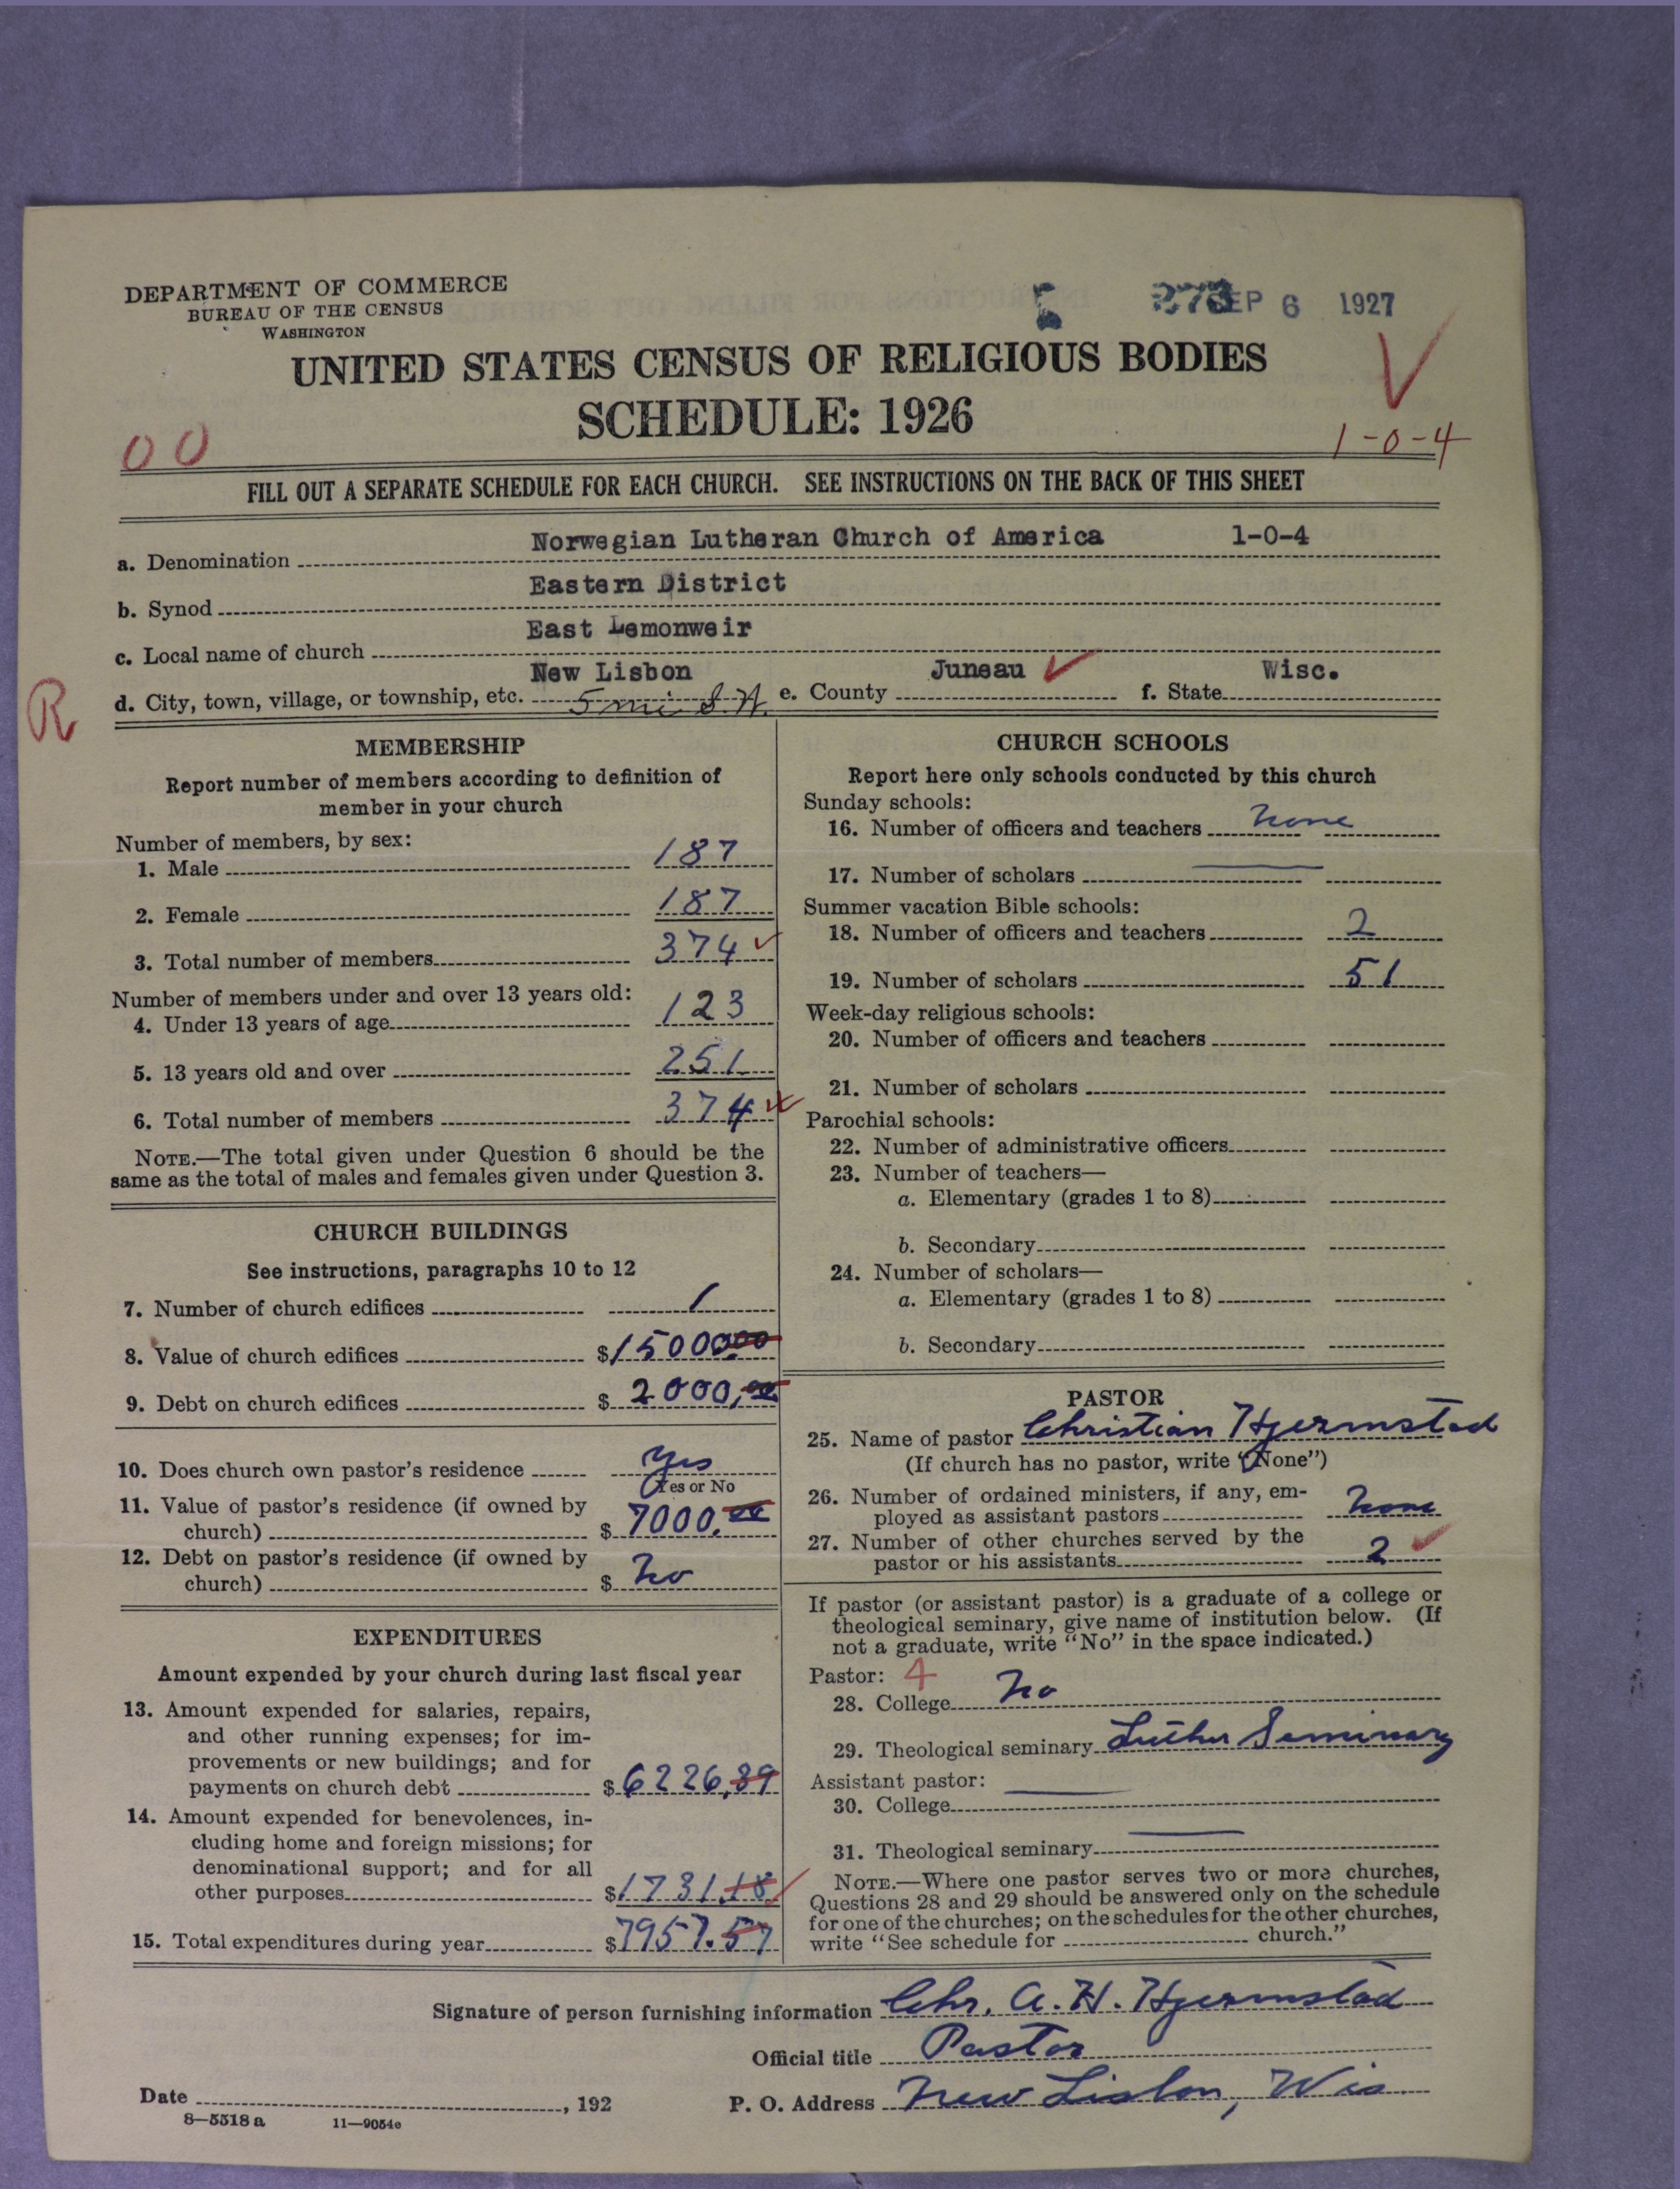 DEPARTMENT OF COMMERCE
BUREAU OF THE CENSUS
WASHINGTON
SEP 6 1927
UNITED STATES CENSUS OF RELIGIOUS BODIES
SCHEDULE: 1926
00
1-0-4
FILL OUT A SEPARATE SCHEDULE FOR EACH CHURCH. SEE INSTRUCTIONS ON THE BACK OF THIS SHEET
a. Denomination Norwegian Lutheran Church of America 1-0-4
b. Synod Eastern District
c. Local name of church East Lemonweir
R
d. City, town, village, or township, etc. New Lisbon 5 mi e. County Juneau f. State Wisc.
MEMBERSHIP
Report number of members according to definition of
member in your church
Number of members, by sex:
1. Male 187
2. Female 187
3. Total number of members 374
Number of members under and over 13 years old:
4. Under 13 years of age 123
5. 13 years old and over 251
6. Total number of members 374
NOTE.—The total given under Question 6 should be the
same as the total of males and females given under Question 3.
CHURCH BUILDINGS
See instructions, paragraphs 10 to 12
7. Number of church edifices 1
8. Value of church edifices $15000.00
9. Debt on church edifices $2000,00
10. Does church own pastor's residence Yes
Yes or No
11. Value of pastor's residence (if owned by
church) $7000.00
12. Debt on pastor's residence (if owned by
church) $No
EXPENDITURES
Amount expended by your church during last fiscal year
13. Amount expended for salaries, repairs,
and other running expenses; for im-
provements or new buildings; and for
payments on church debt $6226,39
14. Amount expended for benevolences, in-
cluding home and foreign missions; for
denominational support; and for all
other purposes $1731.18
15. Total expenditures during year $7957.57
CHURCH SCHOOLS
Report here only schools conducted by this church
Sunday schools:
16. Number of officers and teachers None
17. Number of scholars
Summer vacation Bible schools:
18. Number of officers and teachers 2
19. Number of scholars 51
Week-day religious schools:
20. Number of officers and teachers
21. Number of scholars
Parochial schools:
22. Number of administrative officers
23. Number of teachers—
a. Elementary (grades 1 to 8)
b. Secondary
24. Number of scholars—
a. Elementary (grades 1 to 8)
b. Secondary
PASTOR
25. Name of pastor Christian Hjermstad
(If church has no pastor, write "None")
26. Number of ordained ministers, if any, em-
ployed as assistant pastors None
27. Number of other churches served by the
pastor or his assistants 2
If pastor (or assistant pastor) is a graduate of a college or
theological seminary, give name of institution below. (If
not a graduate, write "No" in the space indicated.)
Pastor: 4
28. College No
29. Theological seminary Luther Seminary
Assistant pastor:
30. College
31. Theological seminary
NOTE.—Where one pastor serves two or more churches,
Questions 28 and 29 should be answered only on the schedule
for one of the churches; on the schedules for the other churches,
write "See schedule for church."
Signature of person furnishing information Chr. A. H. Hjermstad
Official title Pastor
Date , 192 P. O. Address New Lisbon, Wis
8—5518 a 11—9054c